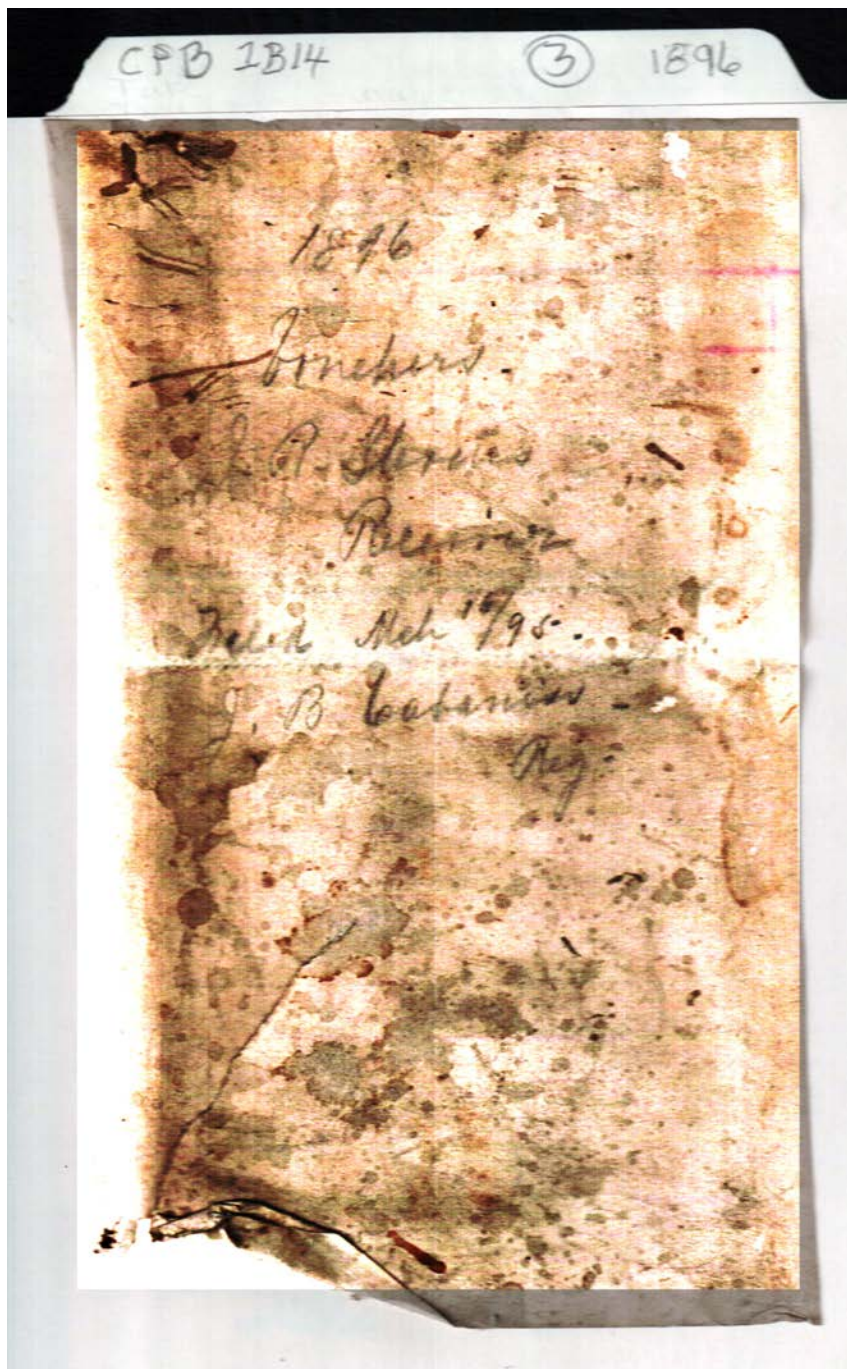 CPB IB14 ③ 1896
1896
Vouchers
J. R. Stevens
Receiver
Filed Mch 16/95.
J. B. Cabaniss
Reg.